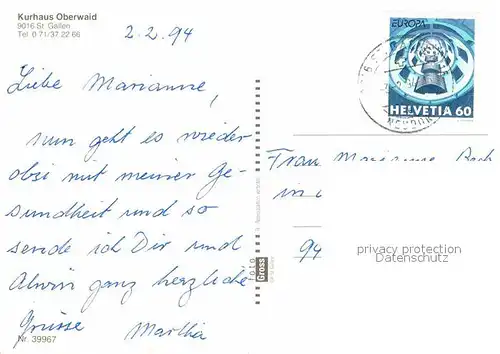 Kurhaus Oberwaid
9016 St. Gallen
Tel 0 71/37 22 66
2.2.94
Liebe Marianne,
nun geht es wieder
obsi mit meiner Ge-
sundheit und so
sende ich Dir und
Alwin ganz herzliche
Grüsse Martha
Nr. 39967
FOTO
Gross
EUROPA
HELVETIA 60
Frau Marianne
94
privacy protection
Datenschutz